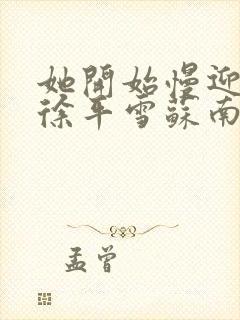 她開始慢迎
徐平雪蘇南
孟曾